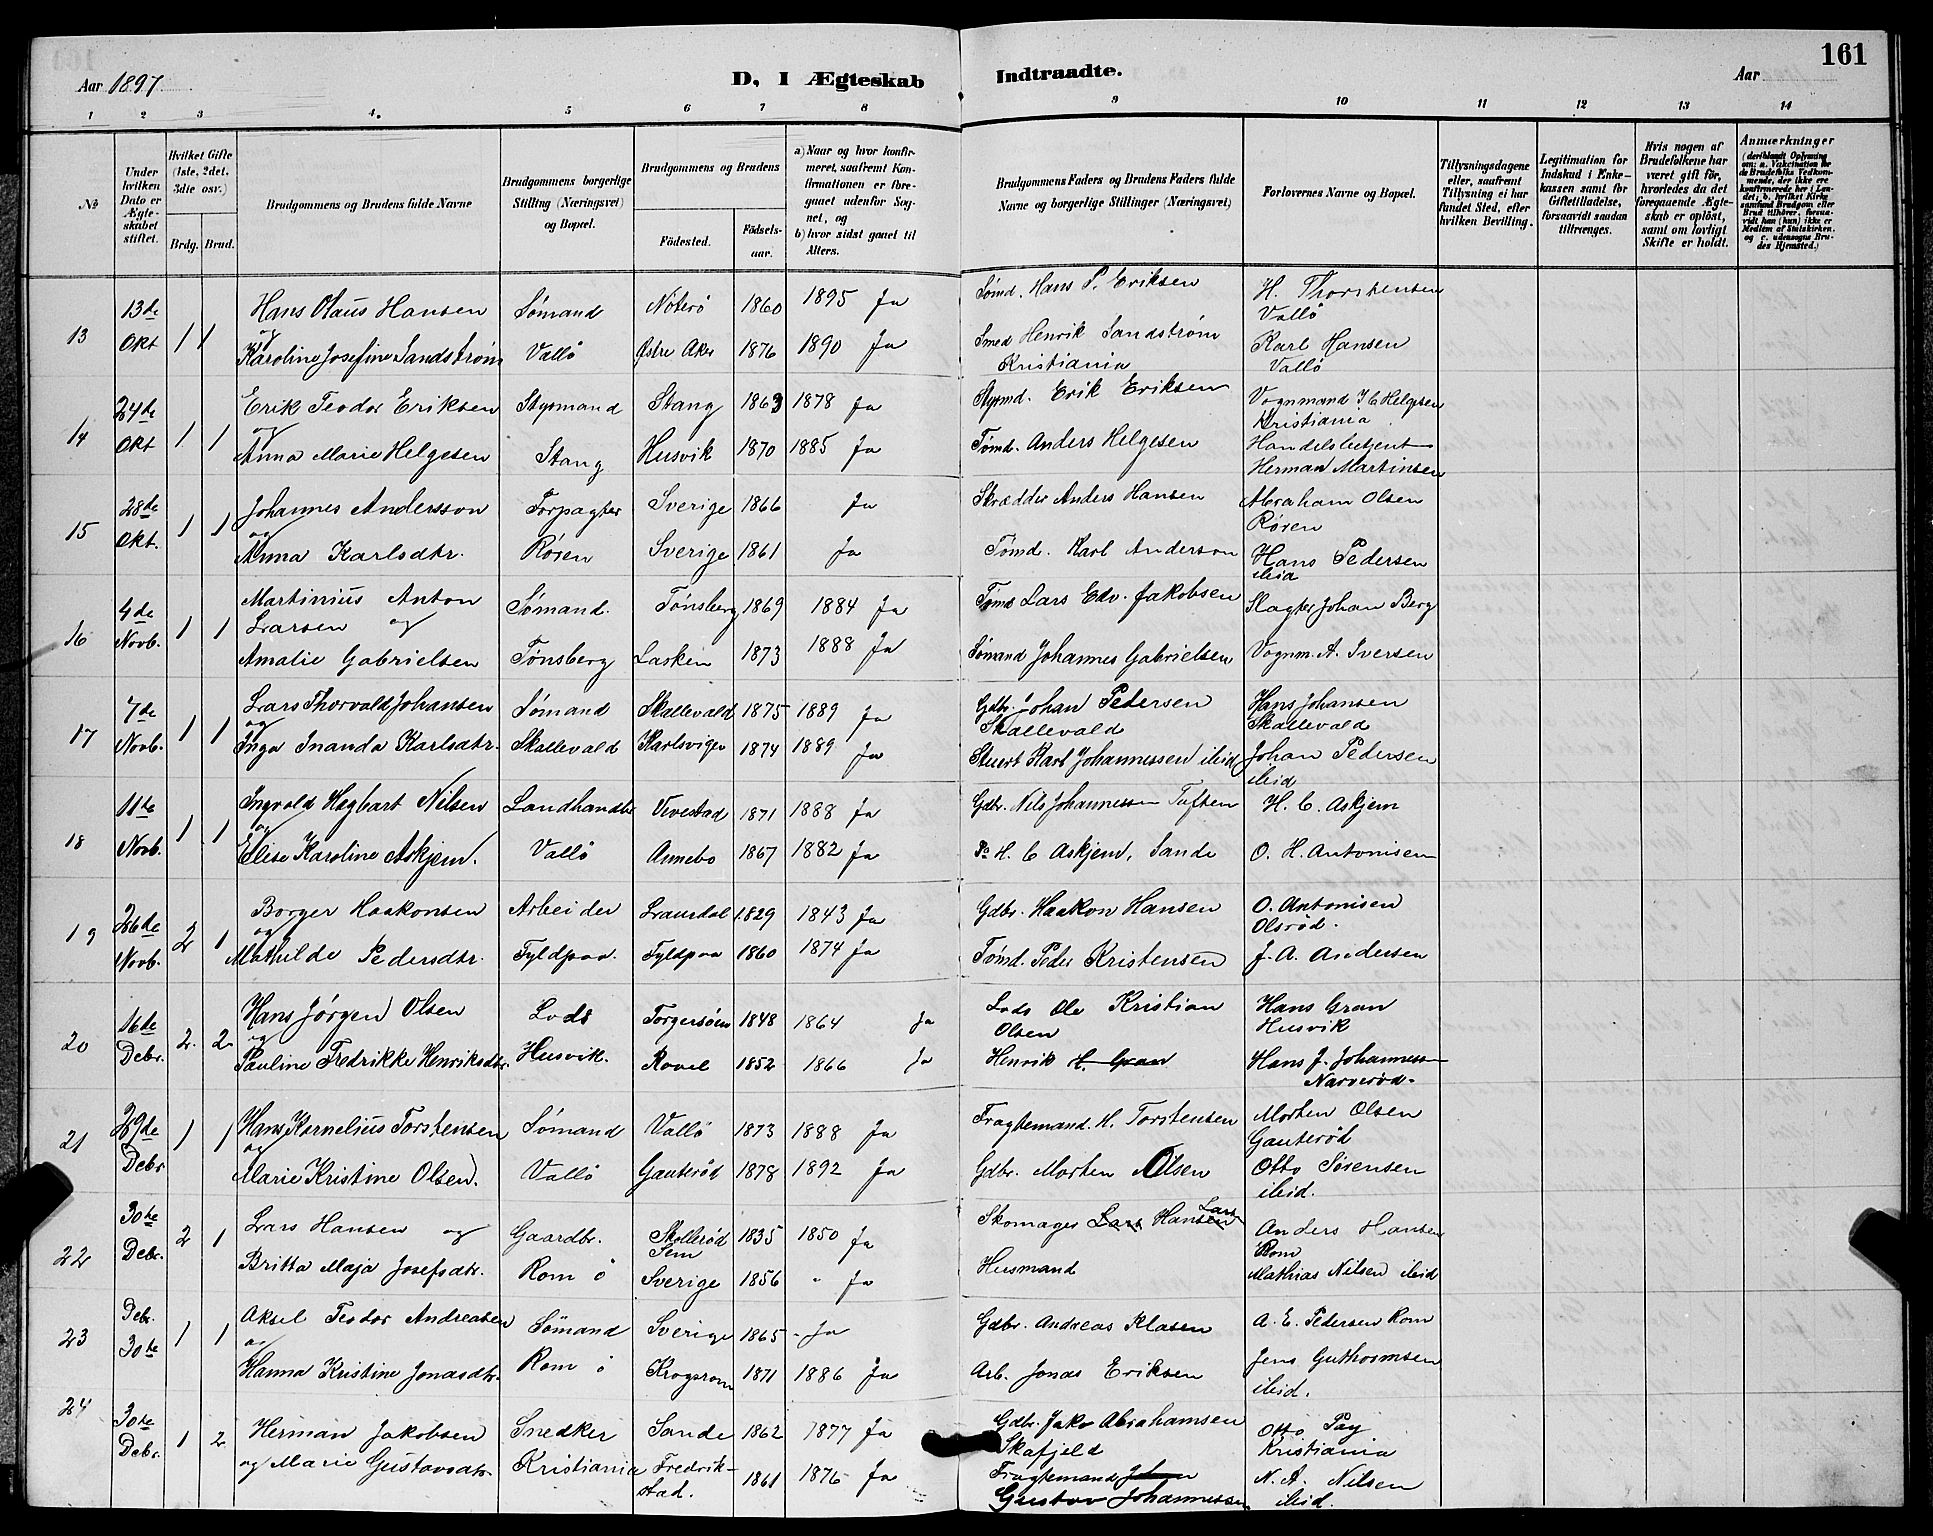 161
Aar 1897
D, I Ægteskab Indtraadte.
Aar
1 2 3 4. 5 6 7 8 9 10 11 12 13 14
No
Under hvilken Dato er Ægteskabet stiftet.
Hvilket Gifte (1ste, 2det, 3die osv.)
Brdg. Brud.
Brudgommens og Brudens fulde Navne
Brudgommens borgerlige Stilling (Næringsvei) og Bopæl.
Brudgommens og Brudens
Fødested.
Fødselsaar.
a) Naar og hvor konfirmeret, saafremt Konfirmationen er foregaaet udenfor Sognet, og
b) hvor sidst gaaet til Alters.
Brudgommens Faders og Brudens Faders fulde Navne og borgerlige Stillinger (Næringsvei)
Forlovernes Navne og Bopæl.
Tillysningsdagene eller, saafremt Tillysning ei har fundet Sted, efter hvilken Bevilling.
Legitimation for Indskud i Enkekassen samt for Giftetilladelse, forsaavidt saadan tiltrænges.
Hvis nogen af Brudefolkene har været gift før, hvorledes da det foregaaende Ægteskab er opløst, samt om lovligt Skifte er holdt.
Anmærkninger
(deriblandt Oplysning om: a. Vakcination for de Brudefolks Vedkommende, der ikke ere konfirmerede her i Landet; b. hvilket Kirkesamfund Brudgom eller Brud tilhører, forsaavidt han (hun) ikke er Medlem af Statskirken, og c. udensogns Brudes Hjemsted.)
13 13de Okt 1 1 Hans Olaus Hansen Sømand Nøterø 1860 1895 Ja Sømd. Hans P. Eriksen H. Thorstensen Vallø
og Karoline Josefine Sandstrøm Vallö Østre Aker 1876 1890 Ja Smed Henrik Sandstrøm Kristiania Karl Hansen Vallö
14 24de Okt 1 1 Erik Teodor Eriksen Styrmand Stang 1863 1878 Ja Styrmd. Erik Eriksen Vognmand J C Helgesen Kristiania
og Anna Marie Helgesen Stang Husvik 1870 1885 Ja Tømd. Anders Helgesen Handelsbetjent Herman Martinsen
15 28de Okt. 1 1 Johannes Andersson Forpagter Sverige 1866 Ja Skrædder Anders Hansen Abraham Olsen Røren
og Anna Karlsdtr. Røren Sverige 1861 Ja Tømd. Karl Anderson Hans Pedersen ibid
16 4de Novb. 1 1 Martinius Anton Larsen og Sømand. Tønsberg 1869 1884 Ja Tømd Lars Edv. Jakobsen Slagter Johan Berg
Amalie Gabrielsen Tønsberg Laskin 1873 1888 Ja Sømand Johannes Gabrielsen Vognm. A. Iversen
17 7de Novb. 1 1 Lars Thorvald Johansen Sømand Skallevald 1875 1889 Ja Gdbr. Johan Pedersen Skallevald Hans Johansen Skallevald
og Inga Inanda Karlsdtr. Skallevald Karlsvigen 1874 1889 Ja Stuert Karl Johannessen ibid Johan Pedersen ibid
18 11te Novb. 1 1 Ingvald Hagbart Nilsen Landhandler Vivestad 1871 1888 Ja Gdbr. Nils Johannessen Tuften H. C. Askjem
og Elise Karoline Askjem. Vallö Annebo 1867 1882 Ja H. C Askjem, Sande O. H. Antonisen
19 26de Novb. 2 1 Borger Haakonsen Arbeider Laurdal 1829 1843 Ja Gdbr. Haakon Hansen O. Antonisen Olsrød.
og Mathilde Pedersdtr. Fyldpaa. Fyldpaa 1860 1874 Ja Tømd. Peder Kristensen J. A. Andersen
20 16de Debr. 2. 2 Hans Jørgen Olsen Lods Torgersøen 1848 1864 Ja Lods Ole Kristian Olsen Hans Gran Husvik
og Pauline Fredrikke Henriksdtr. Husvik. Rovel 1852 1866 Ja Henrik H. Gran Hans J. Johannessen Narverød.
21 29de Debr 1 1 Hans Kornelius Torstensen Sømand Vallö 1873 1888 Ja Fragtemand. H. Torstensen Morten Olsen Gauterød
og Marie Kristine Olsen. Vallö Gauterød 1878 1892 Ja Gdbr. Morten Olsen Otto Sørensen ibid.
22 30te Debr. 2 1 Lars Hansen og Gaardbr. Skallerød Sem 1835 1850 Ja Skomager Lars Hansen Lars Anders Hansen Rom
Britta Maja Josefsdtr. Rom ö Sverige 1856 " Ja Husmand Mathias Nilsen ibid
23 Debr. 30te 1 1 Aksel Teodor Andreasen Sømand Sverige 1865 - Ja Gdbr. Andreas Klasen A. E. Pedersen Rom
og Hanna Kristine Jonasdtr. Rom ö Krogsrom 1871 1886 Ja Arb. Jonas Eriksen Jens Guthormsen ibid.
24 30te Debr. 1 2 Herman Jakobsen Snedker Sande 1862 1877 Ja Gdbr. Jakob Abrahamsen Skafjeld Otto Pay Kristiania
og Marie Gustavsdtr. Kristiania Fredrikstad. 1861 1876 Ja Fragtemand Johan Gustav Johannessen N. A. Nilsen ibid.